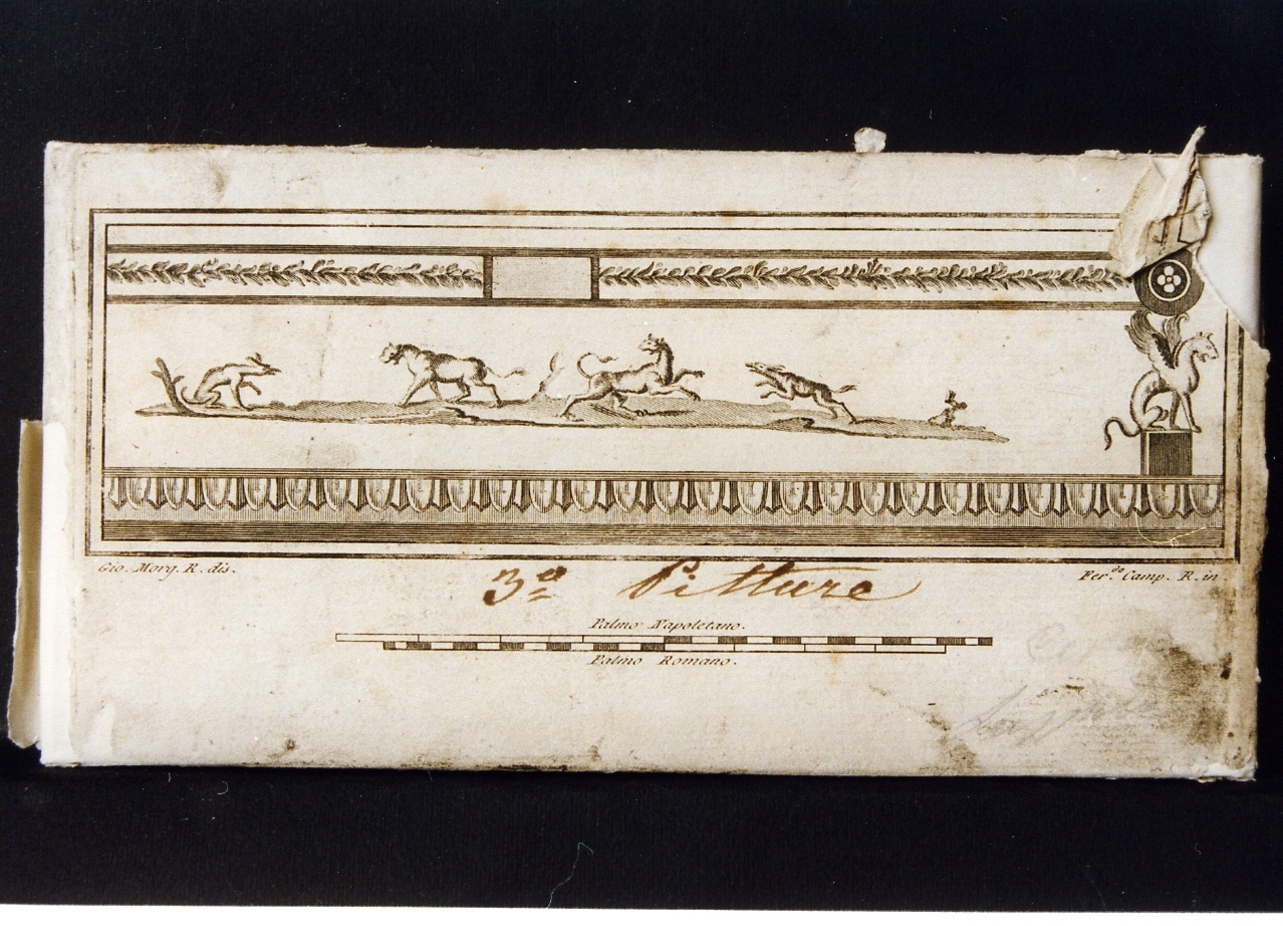 Gio. Morg. R. dis.
Fer.do Camp. R. in.
3.a Pitture
Palmo Napoletano.
Palmo Romano.